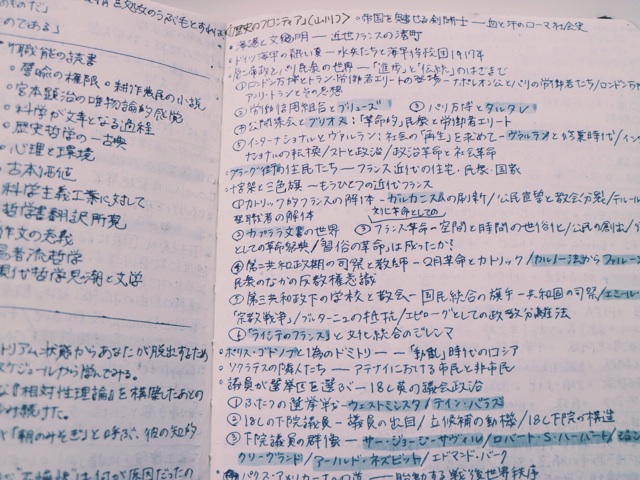 のである」
作戦能の読書
◦譬喩の権限 ◦耕作農民の小説
◦宮本顕治の唯物論的感覚
◦科学が文字となる過程
◦歴史哲学の一古典
◦心理と環境
◦古本価値
科学主義工業に対して
哲学書翻訳所見
作文の意義
易者流哲学
現代哲学思潮と文学
トリアム状態からあなたが脱出するため
スケジュールから省いてみる。
『相対性理論』を構層したあとの
み続けた。
「朝のみそぎ」と呼ぶ、彼の知的
〈歴史のフロンティア(山川)〉 ◦帝国を魅せる剣闘士 ― 血と汗のローマ社会史
◦港湛と文明 ― 近世フランスの港町
◦ドイツ海軍の熱い夏 ― 水兵たちと海軍将校団1917年
◦第二帝政とパリ民衆の世界 ―「進歩」と「伝統」のはざまで
①ロンドン万博とトラン:労働者エリートの登場 ― ナポレオン公とパリの労働者たち/ロンドン
アンリ・トランとその思想
②労働信用組合とブリューズ ③パリ万博とタルタレ
④公開集会とブリオス:「革命的」民衆と労働者エリート
⑤インターナショナルとヴァルラン:社会の「再生」を求めて ― ヴァルランと修業時代/イン
ナショナルの転換/ストと政治/政治革命と社会革命
◦プラーグ街の住民たち ― フランス近代の住宅・民衆・国家
◦十字架と三色旗 ― もうひとつの近代フランス
①カトリックがフランスの解体 ― ガルカニスムの刷新/公民宣誓と教会分裂/テルール
聖職者の解体 文化革命としての
②カブララ文書の世界 ③フランス革命 ― 空間と時間の世俗化/公民の創出/
としての革命祭典/習俗の革命は成ったか?
④第二共和政期の司祭と教師 ― 2月革命とカトリック/カルノー法からファルー
民衆のなかの反教権意識
⑤第三共和政下の学校と教会 ― 国民統合の旗手 ― 共和国の司祭/エミール
「宗教戦争」/ブルターニュの抵抗/エピローグとしての政教分離法
⑥「ライシテのフランス」と文化統合のジレンマ
◦ボリス・ゴドノフと偽のドミトリー ―「動乱」時代のロシア
◦ソクラテスの隣人たち ― アテナイにおける市民と非市民
◦議員が選挙区を選ぶ ― 18c英の議会政治
①ふたつの選挙学 ― ウェストミンスタ/テイン・バラズ
②18c下院議員 ― 議員の出自/立候補の動機/18c下院の構造
③下院議員の群像 ― サー・ジョージ・サヴィル/ロバート・S・ハーバート/
クリーグランド/アーノルド・ネズビット/エドマンド・バーク
◦パクス・アメリカーナへの道 ― 胎動する戦後世界秩序